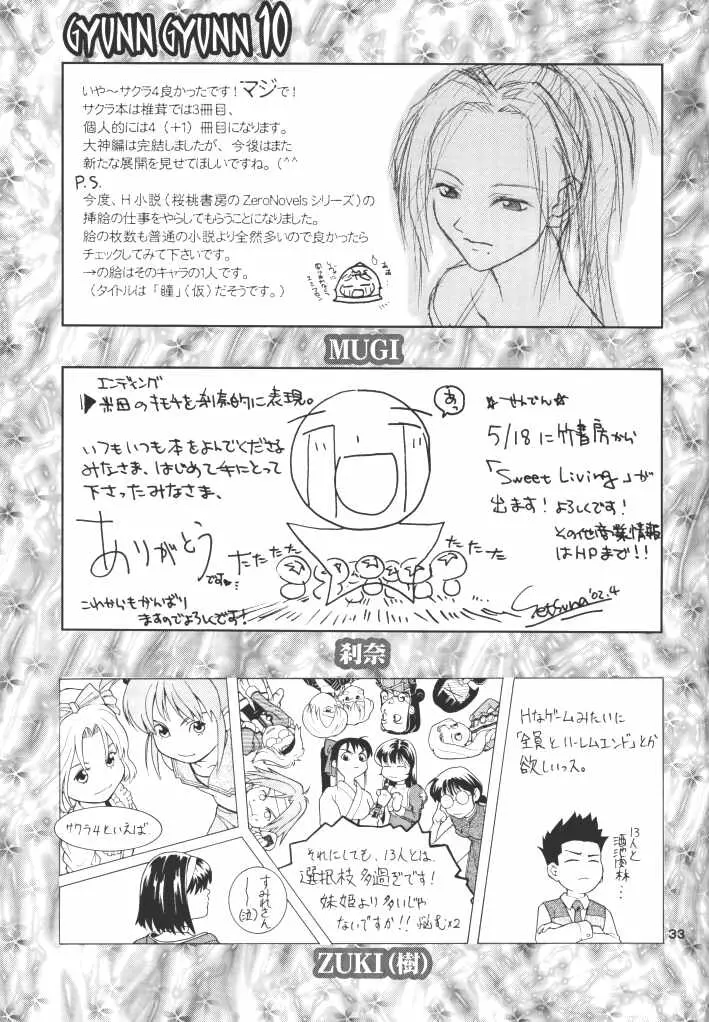 GYUNN GYUNN 10
いや～サクラ4良かったです！マジで！
サクラ本は椎茸では3冊目、
個人的には4（+1）冊目になります。
大神編は完結しましたが、今後はまた
新たな展開を見せてほしいですね。(^^
P.S.
今度、H小説（桜桃書房のZeroNovelsシリーズ）の
挿絵の仕事をやらしてもらうことになりました。
絵の枚数も普通の小説より全然多いので良かったら
チェックしてみて下さいです。
→の絵はそのキャラの1人です。
（タイトルは「瞳」（仮）だそうです。）
MUGI
エンディング
▶米田のキモチを刹奈的に表現。
いつもいつも本をよんでくださる
みなさま、はじめて手にとって
下さったみなさま、
ありがとう
です♥
これからもがんばり
ますのでよろしくです！
あっ
たたたた
たたたた
☆せんでん☆
5/18に竹書房から
「Sweet Living」が
出ます！よろしくです！
その他商業情報
はHPまで！！
Setsuna '02.4
刹奈
サクラ4といえば
すみれさん
～～(泣)
それにしても、13人とは
選択枝多過ぎです！
妹姫より多いじゃ
ないですか！！悩む×2
Hなゲームみたいに
「全員とハーレムエンド」とか
欲しいッス。
13人と
酒池肉林…
33
ZUKI（樹）